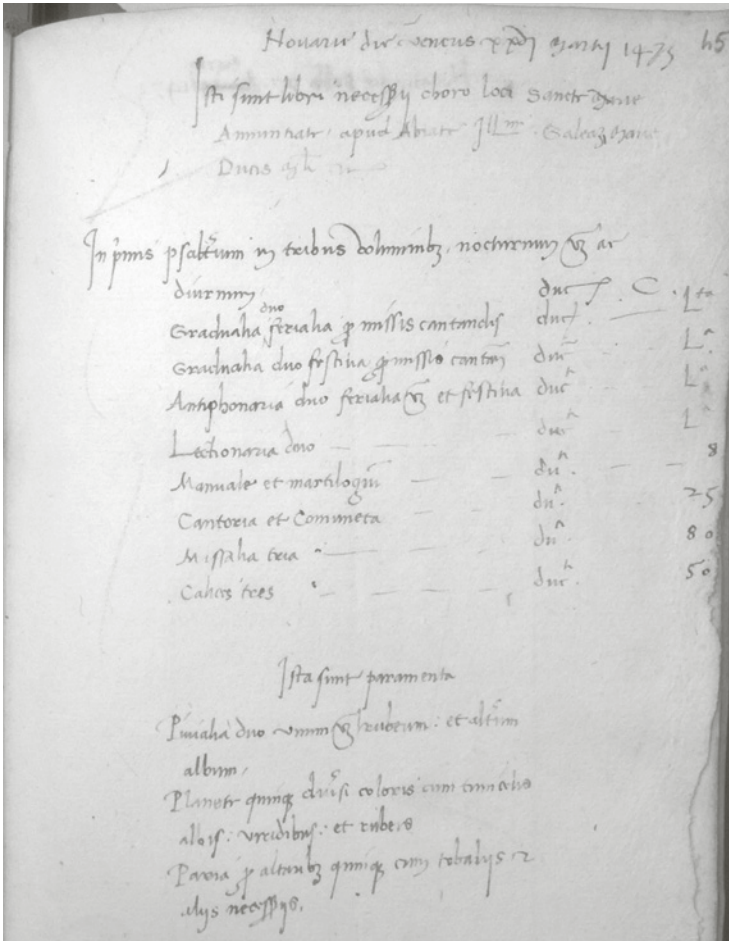 Novarie die veneris xxvj martij 1473 65
Isti sunt libri necessarij choro loci Sancte Marie
Annuntiate apud Abiate Ill.mi Galeaz Marie
Ducis Mli
In primis psalterium in tribus voluminibz. nocturnum vz ac
diurnum duct C.
Gradualia duo ferialia p missis cantandis duct. L.ta
Gradualia duo festiva p missis cantan duc L.a
Antiphonaria duo ferialia vz et festiva duc.ti L.a
Lectionaria duo duc.ti L.a
Manuale et martilogiu du.ti 8
Cantoria et Comuneta du.ti 25
Missalia tria du.ti 80
Calices tres duc.ti 50
Ista sunt paramenta
Pivialia duo unum vz rubeum: et alterum
album.
Planete quinq diversi coloris cum tunicelis
albis: viridibus: et rubeis
Paria p altaribz quinq cum tobaliis
aliis necessariis.